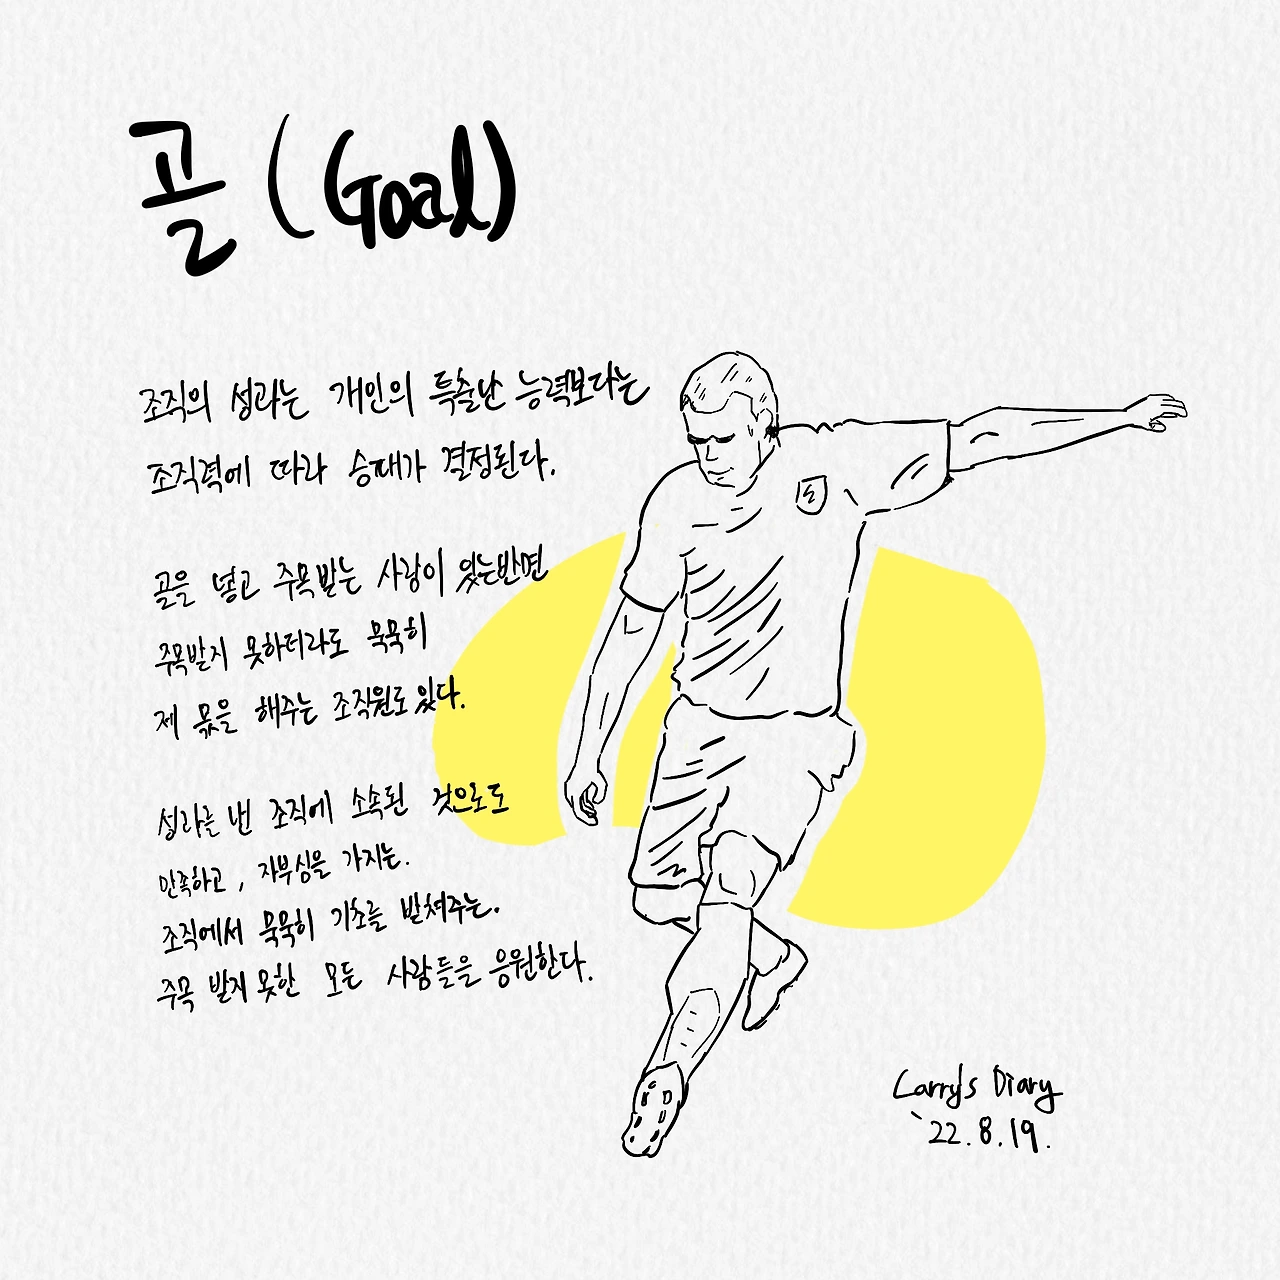 골 (Goal)
조직의 성과는 개인의 특출난 능력보다는
조직력에 따라 승패가 결정된다.
골을 넣고 주목받는 사람이 있는반면
주목받지 못하더라도 묵묵히
제 몫을 해주는 조직원도 있다.
성과를 낸 조직에 소속된 것으로도
만족하고, 자부심을 가지는.
조직에서 묵묵히 기초를 받쳐주는.
주목 받지 못한 모든 사람들을 응원한다.
Larry's Diary
`22.8.19.